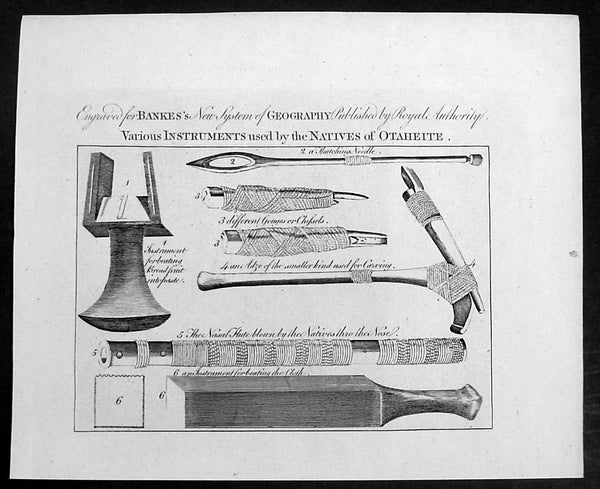 Engraved for BANKES's New System of GEOGRAPHY Published by Royal Authority.
Various INSTRUMENTS used by the NATIVES of OTAHEITE.
2 a Thatching Needle.
2
1
3
3 different Gouges or Chissels.
3
1
Instrument
for beating
Bread fruit
into paste.
4 an Adze of the smaller kind used for Carving.
4
5 The Nasal Flute blown by the Natives thro the Nose.
5
6 an Instrument for beating the Cloth.
6
6